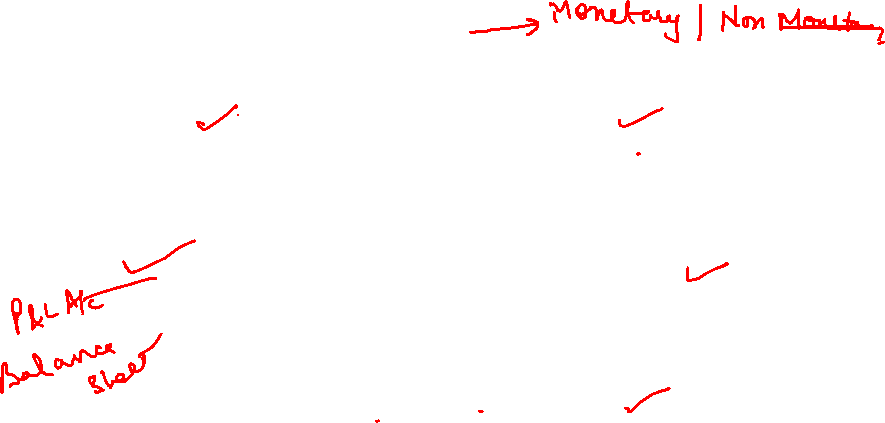 Monetary | Non Monetary
P&L A/c
Balance
Sheet